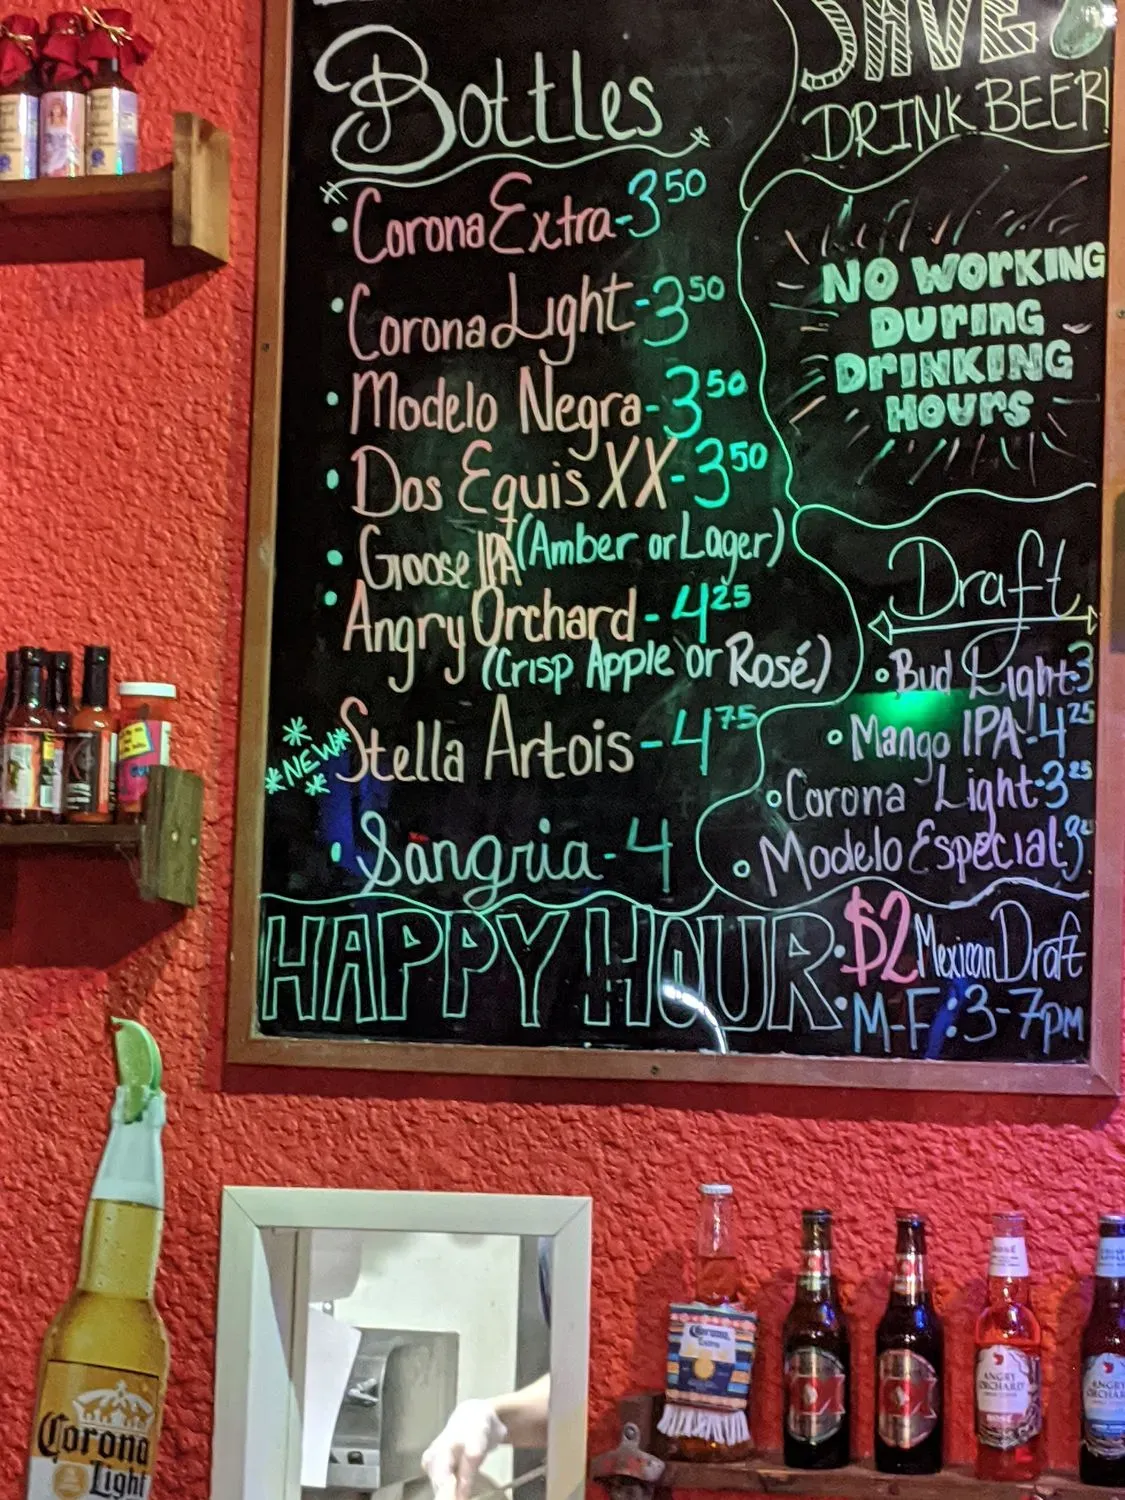 Bottles
• Corona Extra - 3 50
• Corona Light - 3 50
• Modelo Negra - 3 50
• Dos Equis XX - 3 50
(Amber or Lager)
• Goose IPA
• Angry Orchard - 4 25
(Crisp Apple or Rosé)
*NEW* Stella Artois - 4 75
• Sangria - 4
SAVE
DRINK BEER!
NO WORKING
DURING
DRINKING
HOURS
Draft
• Bud Light - 3
• Mango IPA - 4 25
• Corona Light - 3 25
• Modelo Especial
HAPPY HOUR
• $2 Mexican Draft
• M-F: 3-7pm
Corona
Light
Corona
Extra
ANGRY
ORCHARD
ROSÉ
ANGRY
ORCHARD